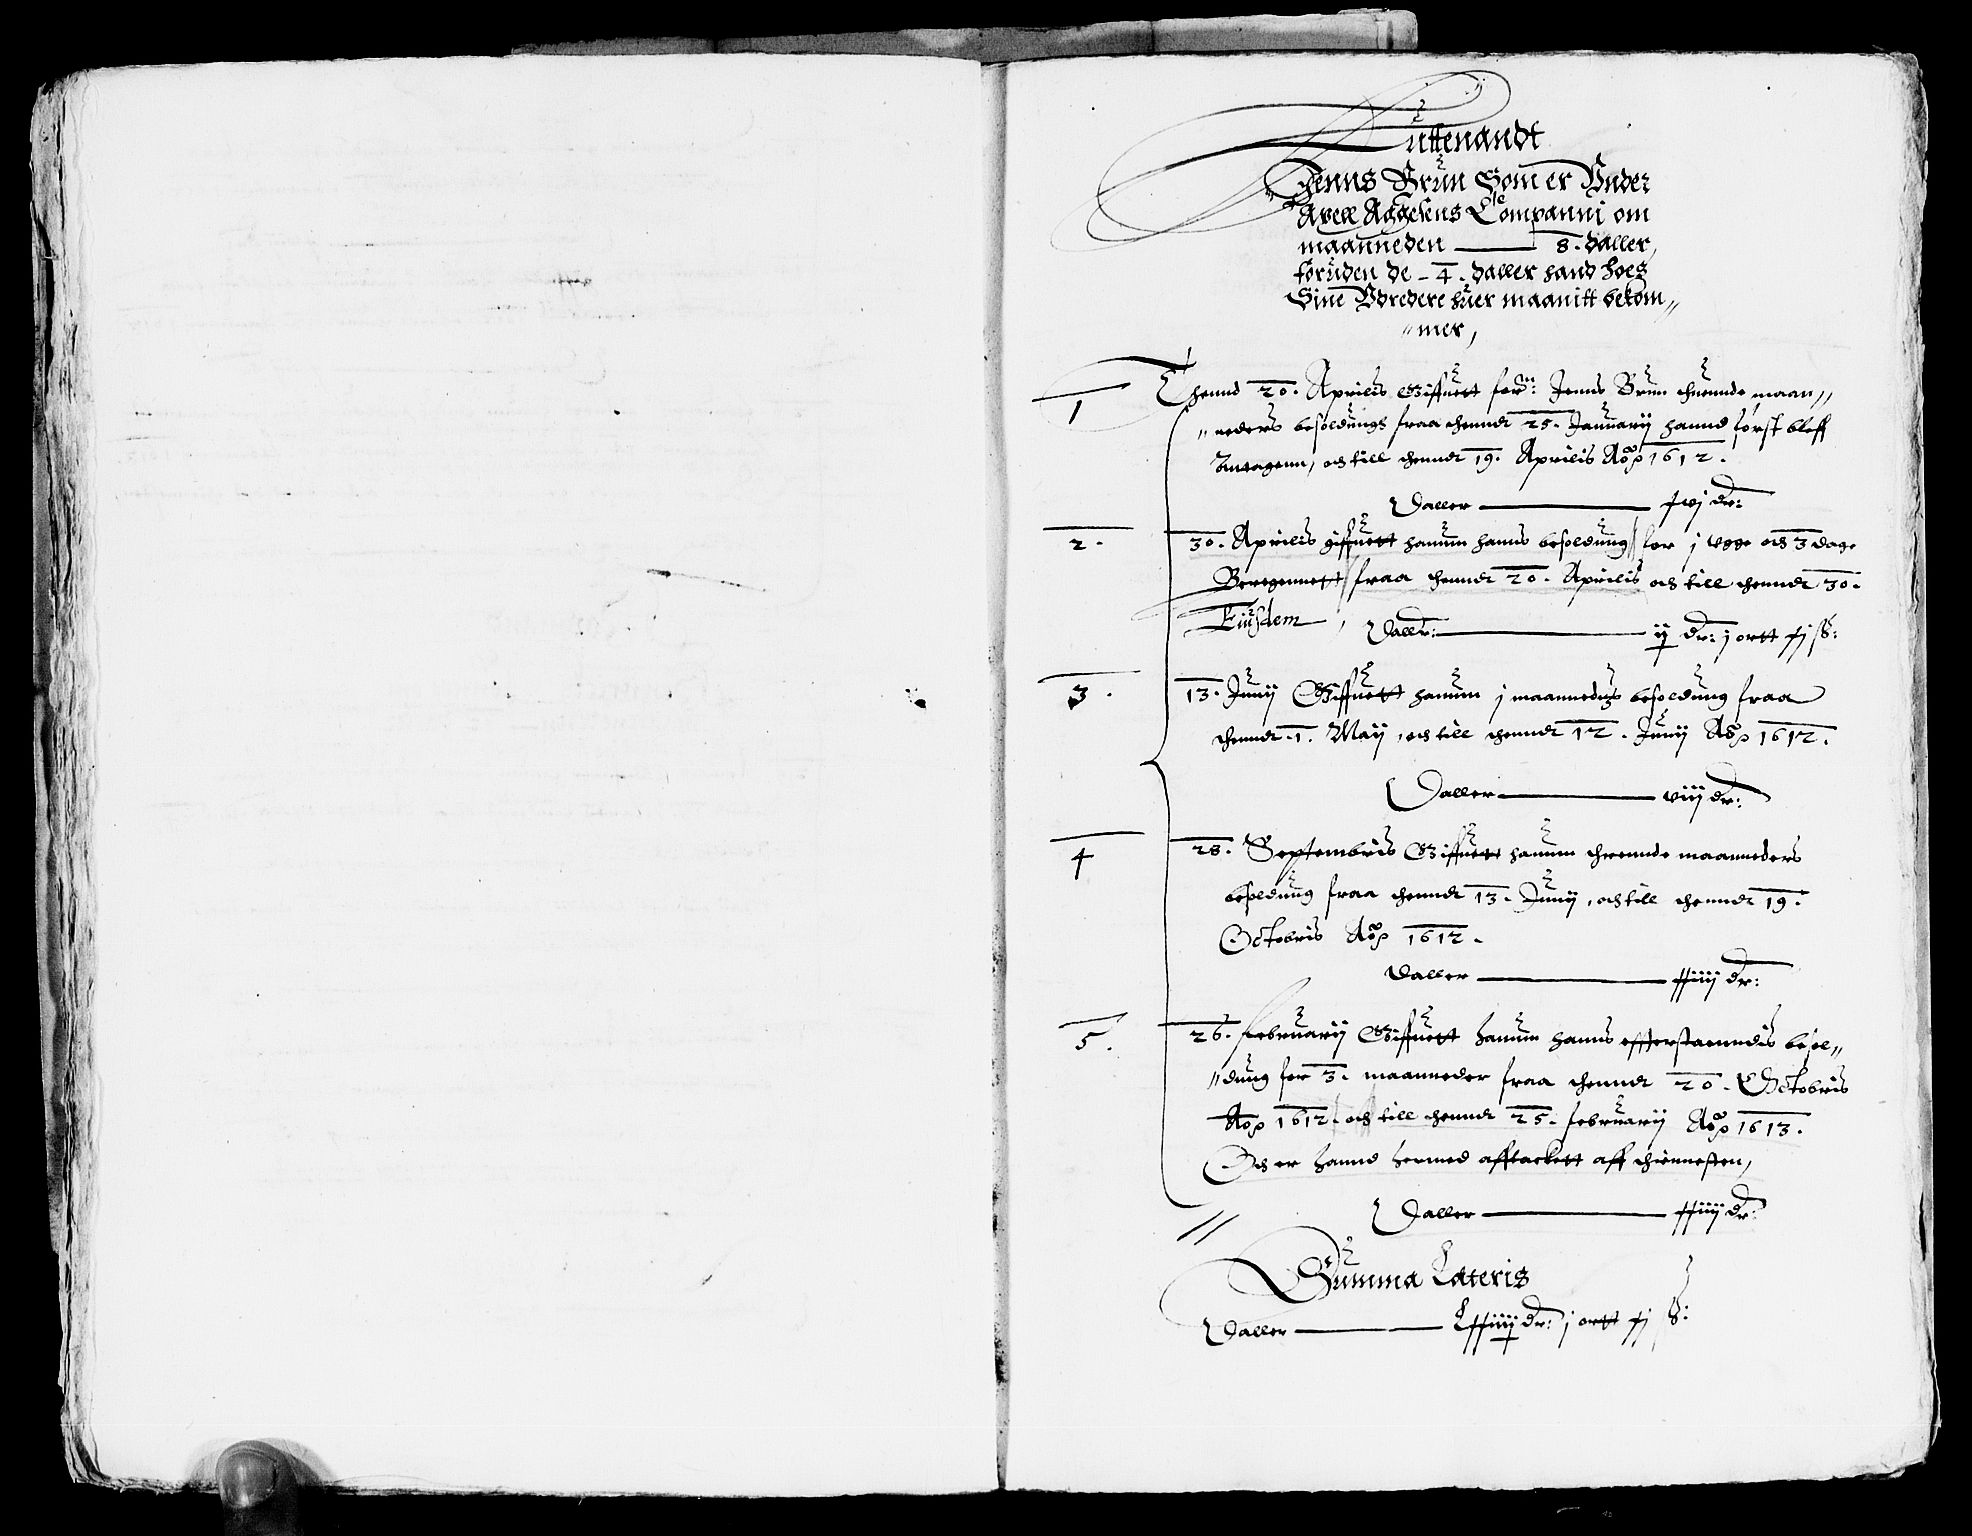 Lüttenandt
Jenns Brun Som er Vnder
Axell Aggesens Compannj om
maanneden — 8. daller,
foruden de - 4. daller hand hoes
Sine Vdredere huer maanitt bekom„
„mer,
1 Thennd 20. Aprilis Giffuett forn: Jenns Brun thuennde maan„
„neders besoldungs fraa thenndt 25. Januarij hannd først bleff
Anntagenn, och till thenndt 19. Aprilis Aop 1612.
Daller — xvj dr:
2. 30. Aprilis giffuett hannum hanns besoldung for j vge och 3 dage
Beregennett fraa thenndt 20. Aprilis och till thenndt 30.
Eiusdem, Daller: — ij dr: j ortt xj ß:
3. 13. Junij Giffuett hannum j maannedtz besoldung fraa
thenndt 1. Maij, och till thenndt 12. Junij Aop 1612.
Daller — viij dr:
4 28. Septembris Giffuett hannum thrennde maanneders
besoldung fraa thenndt 13. Junij, och till thenndt 19.
Octobris Aop 1612.
Daller — xxiiij dr:
5. 26. Februarij Giffuett hannum hanns efferstaenndis besol„
„dung for 3. maanneder fraa thenndt 20. Octobris
Aop 1612. och till thenndt 25. februarij Aop 1613.
Och er hannd hermed afftackett aff thiennesten,
Daller — xxiiij dr:
Summa Lateris
Daller — Lxxiiij dr: j ortt xj ß: